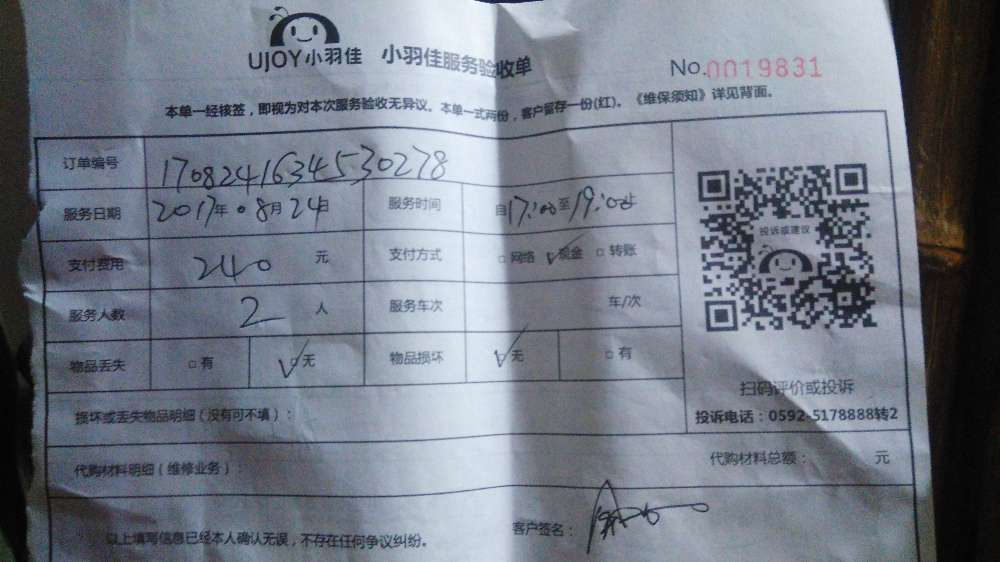 UJOY小羽佳 小羽佳服务验收单 No.0019831
本单一经核签，即视为对本次服务验收无异议。本单一式两份，客户留存一份(红)。《维保须知》详见背面。
订单编号 170824163453​0278
服务日期 2017年08月24日 服务时间 自17:00至19:00止
支付费用 240 元 支付方式 □网络 ☑现金 □转账
服务人数 2 人 服务车次 车/次
物品丢失 □有 ☑无 物品损坏 ☑无 □有
投诉或建议
扫码评价或投诉
投诉电话：0592-5178888转2
损坏或丢失物品明细（没有可不填）：
代购材料明细（维修业务）： 代购材料总额： 元
以上填写信息已经本人确认无误，不存在任何争议纠纷。 客户签名：